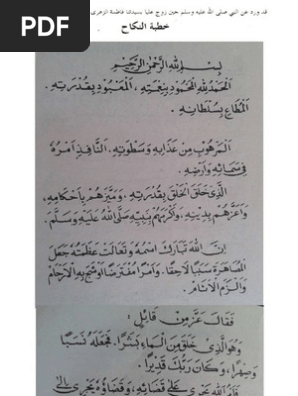 PDF
قد وره عن النبي صلى الله عليه وسلم حين زوج عليا بسيدتنا فاطمة الزهرى
خطبة النكاح
بِسْمِ اللهِ الرَّحْمٰنِ الرَّحِيْمِ
اَلْحَمْدُ لِلّٰهِ الْمَحْمُوْدِ بِنِعْمَتِهِ، اَلْمَعْبُوْدِ بِقُدْرَتِهِ.
اَلْمُطَاعِ بِسُلْطَانِهِ.
اَلْمَرْهُوْبِ مِنْ عَذَابِهِ وَسَطْوَتِهِ. اَلنَّافِذِ اَمْرُهُ
فِى سَمَائِهِ وَاَرْضِهِ.
اَلَّذِى خَلَقَ الْخَلْقَ بِقُدْرَتِهِ، وَمَيَّزَهُمْ بِاَحْكَامِهِ،
وَاَعَزَّهُمْ بِدِيْنِهِ، وَاَكْرَمَهُمْ بِنَبِيِّهِ صَلَّى اللهُ عَلَيْهِ وَسَلَّمَ.
اِنَّ اللهَ تَبَارَكَ اسْمُهُ وَتَعَالَتْ عَظَمَتُهُ جَعَلَ
الْمُصَاهَرَةَ سَبَبًا لَاحِقًا. وَاَمْرًا مُفْتَرَضًا اَوْشَجَ بِهِ الْاَرْحَامَ
وَاَلْزَمَ الْاَنَامَ.
فَقَالَ عَزَّ مِنْ قَائِلٍ:
وَهُوَ الَّذِى خَلَقَ مِنَ الْمَاءِ بَشَرًا. فَجَعَلَهُ نَسَبًا
وَصِهْرًا، وَكَانَ رَبُّكَ قَدِيْرًا.